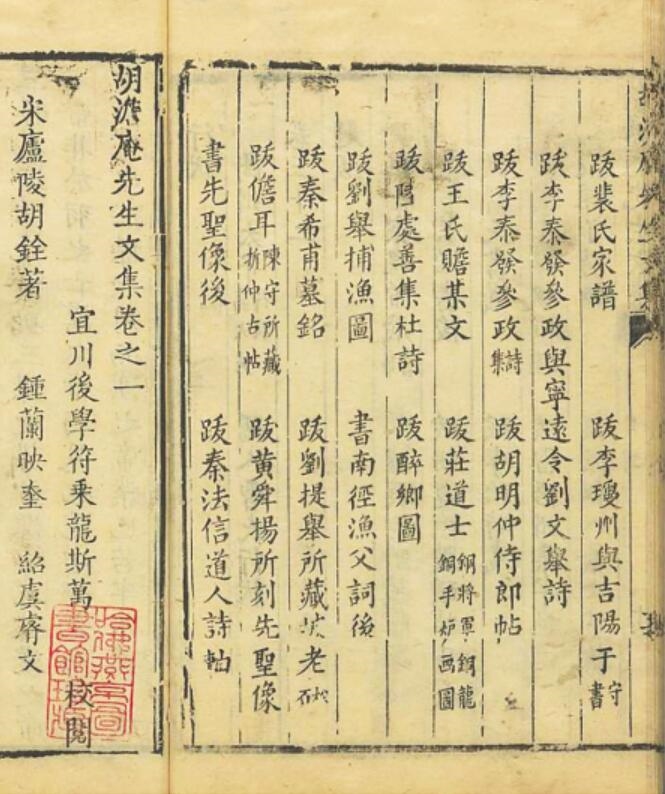 跋裴氏家譜 跋李瓊州與吉陽于守書
跋李泰發參政與寧遠令劉文舉詩
跋李泰發參政詩集 跋胡明仲侍郎帖
跋王氏贍某文 跋莊道士銅將軍銅龍銅手炉画圖
跋處善集杜詩 跋醉鄉圖
跋劉舉捕漁圖 書南徑漁父詞後
跋秦希甫墓銘 跋劉提舉所藏坡老
跋儋耳陳守所藏折仲古帖 跋黃舜揚所刻先聖像
書先聖像後 跋秦法信道人詩軸
胡澹庵先生文集卷之一
宜川後學符乘龍斯萬 校閱
宋廬陵胡銓著 鍾蘭映奎 紹虞文
哈佛燕京圖
書館珍藏